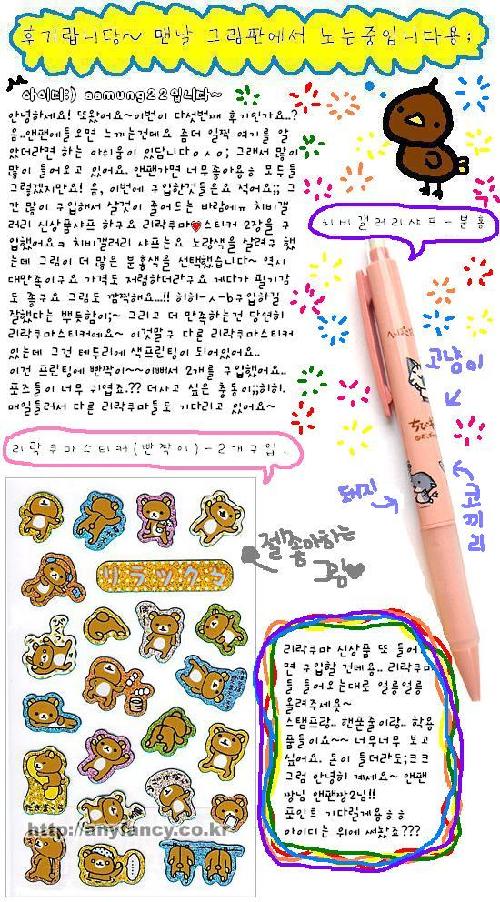 후기랍니당~ 맨날 그림판에서 노는중입니다용;
아이디:) aomung22입니다~
안녕하세요! 또왔어요~이번이 다섯번째 후기인가요..?
음..앤팬에들오면 느끼는건데요 좀더 일찍 여기를 알
았더라면 하는 아쉬움이 있답니다ㅇㅅㅇ; 그래서 많이
많이 들어오고 있어요. 앤팬가면 너무좋아용ㅎ 모두들
그럴겠지만요! 음, 이번에 구입한것들은요 적어요;; 그
간 많이 구입해서 살것이 줄어드는 바람에ㅠ 치비갤
러리 신상품샤프 하구요 리락쿠마♥스티커 2장을 구
입했어요ㅋ 치비갤러리 샤프는요 노랑색을 살려구 했
는데 그림이 더 많은 분홍색을 선택했습니다~ 역시
대만족이구요 가격도 저렴하더라구요 게다가 필기감
도 좋구요 그림도 깜찍해요..!! 히히-ㅅ-b구입하길
잘했다는 뿌듯함이;~ 그리고 더 만족하는건 당연히
리락쿠마스티커에요~ 이것말구 다른 리락쿠마스티커
있는데 그건 테두리에 색프린팅이 되어있어요..
이건 프린팅에 빤짝이~~이뻐서 2개를 구입했어요..
포즈들이 너무 귀엽죠.?? 더사고 싶은 충동이;;히히.
매일들러서 다른 리락쿠마들도 기다리고 있어요~
치비갤러리샤프-분홍
고냥이
돼지
코끼리
리락쿠마스티커(빤짝이)-2개구입.
젤좋아하는
그림♥
リラックマ
리락쿠마 신상품 또 들어오
면 구입할 건데용.. 리락쿠마
들 들어오는대로 얼릉얼릉
올려주세요~
스탬프랑.. 핸폰줄이랑.. 학용
품들이요~~ 너무너무 보고
싶어요. 돈이 들더라도;크크
그럼 안녕히 계세요~ 앤팬
짱님 앤팬짱2님!!
포인트 기다릴게용ㅎㅎ
아이디는 위에 써놨죠???
http://anyfancy.co.kr